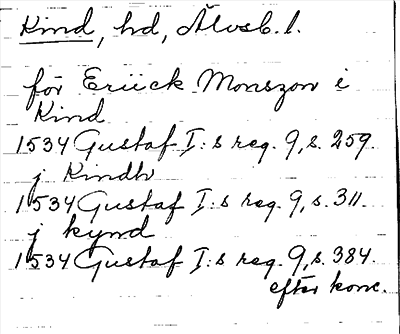 Kind, hd, Älvsb. l.
för Eriick Monszon i
Kind
1534 Gustaf I:s reg. 9, s. 259.
j Kindh
1534 Gustaf I:s reg. 9, s. 311.
j kynd
1534 Gustaf I:s reg. 9, s. 384.
efter konc.